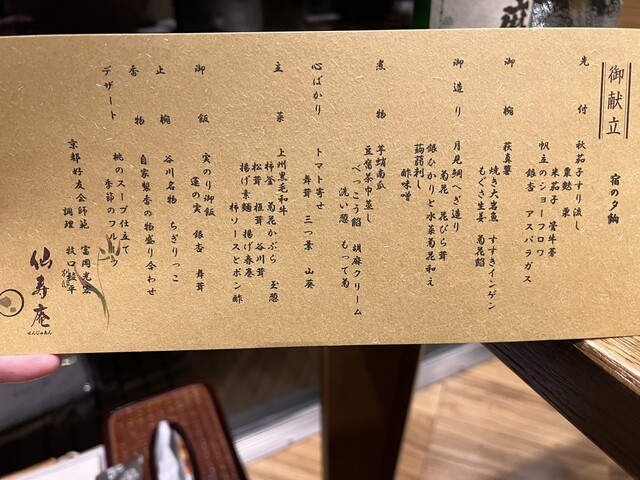 御献立
宿の夕餉
先付
秋茄子すり流し
粟麩 栗
米茄子 管牛蒡
帆立のショーフロワ
銀杏 アスパラガス
御椀
萩真薯
焼き大岩魚 すすきインゲン
もぐさ生姜 菊花餡
御造り
月見鯛へぎ造り
菊花 花びら茸
銀ひかりと水菜菊花和え
蒟蒻刺し
酢味噌
煮物
芋蛸南瓜
豆富茶巾蒸し
べっこう餡 胡麻クリーム
洗い葱 もって菊
心ばかり
トマト寄せ
舞茸 三つ葉 山葵
主菜
上州黒毛和牛
柿釜 菊花かぶら 玉葱
松茸 椎茸 谷川茸
揚げ素麺 揚げ春巻
柿ソースとポン酢
御飯
実のり御飯
蓮の実 銀杏 舞茸
止椀
谷川名物 ちぎりっこ
香物
自家製香の物盛り合わせ
デザート
桃のスープ仕立て
季節のフルーツ
京都好友会師範
調理 牧口
仙寿庵
せんじゅあん